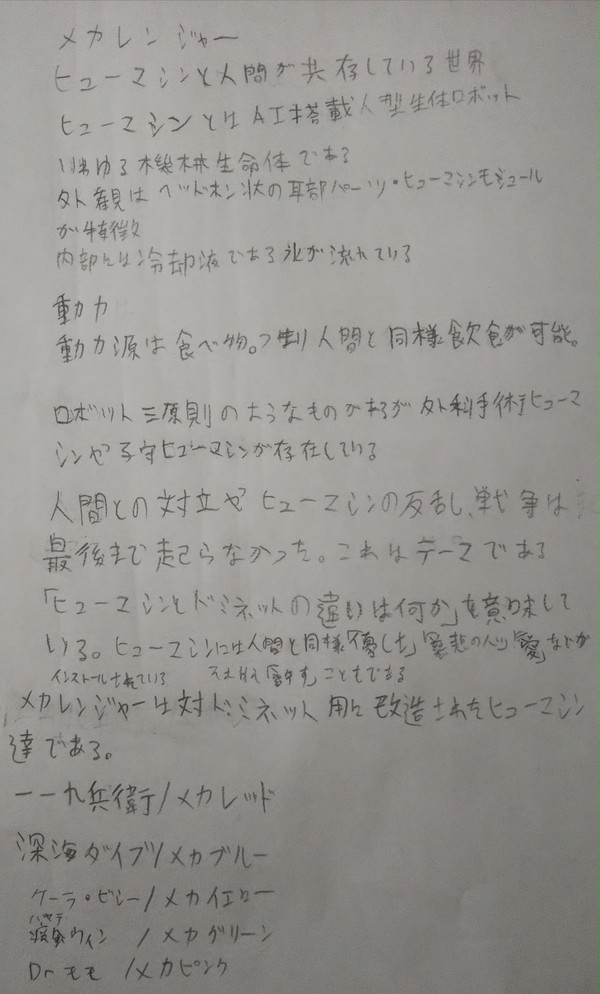 メカレンジャー
ヒューマシンと人間が共存している世界
ヒューマシンとはAI搭載人型生体ロボット
いわゆる機械生命体である
外観はヘッドホン状の耳部パーツ・ヒューマシンモジュール
が特徴
内部には冷却液である氷が流れている
動力
動力源は食べ物。つまり人間と同様飲食が可能。
ロボット三原則のようなものがあるが外科手術ヒューマ
シンや子守ヒューマシンが存在している
人間との対立やヒューマシンの反乱、戦争は
最後まで起こらなかった。これはテーマである
「ヒューマシンとドミネットの違いは何か」を意味して
いる。ヒューマシンには人間と同様「優しさ」「慈悲の心」「愛」などが
インストールされている それゆえ「許す」こともできる
メカレンジャーは対ドミネット用に改造されたヒューマシン
達である。
一一九兵衛/メカレッド
深海ダイブ/メカブルー
ケーラ・ビシー/メカイエロー
ハヤテ
疾風ウィン /メカグリーン
Drモモ /メカピンク